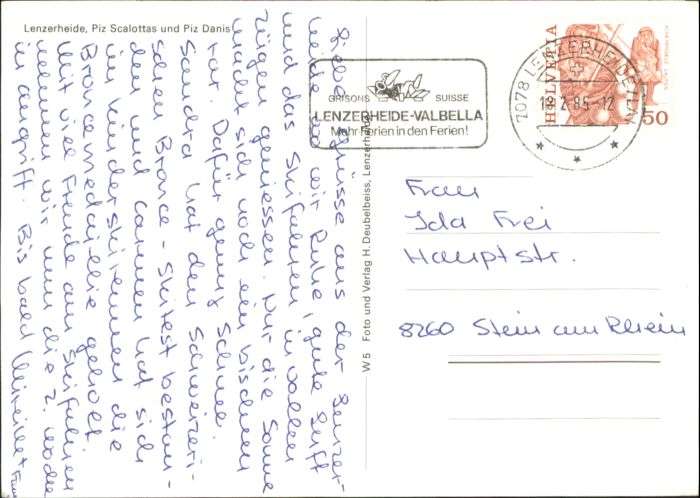 Lenzerheide, Piz Scalottas und Piz Danis
Liebe Grüsse aus der Lenzer-
heide wo wir Ruhe, gute Luft
und das Skifahren in vollen
Zügen geniessen. Nur die Sonne
macht sich noch ein bisschen
rar. Dafür genug Schnee.
Sandra hat den Schweizeri-
schen Bronce-Skitest bestan-
den und Carmen hat sich
im Kinderskirennen die
Broncemedaille geholt.
Mit viel Freude am Skifahren
nehmen wir nun die 2. Woche
in angriff. Bis bald Mireille + Fam
W 5 Foto und Verlag H. Deubelbeiss, Lenzerheide
GRISONS SUISSE
LENZERHEIDE-VALBELLA
Mehr Ferien in den Ferien!
7078 LENZERHEIDE/LAI
2.85-12
HELVETIA
50
Frau
Ida Frei
Hauptstr.
8260 Stein am Rhein